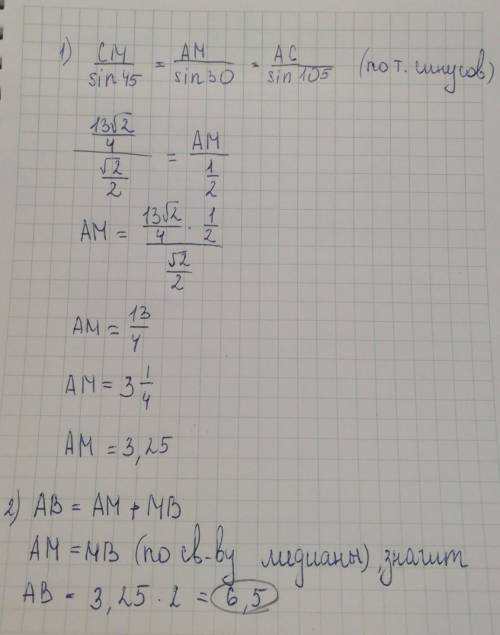 1) CM/sin 45 = AM/sin 30 = AC/sin 105 (по т. синусов)
(13√2/4)/(√2/2) = AM/(1/2)
AM = (13√2/4 · 1/2)/(√2/2)
AM = 13/4
AM = 3 1/4
AM = 3,25
2) AB = AM + MB
AM = MB (по св-ву медианы), значит
AB = 3,25 · 2 = 6,5